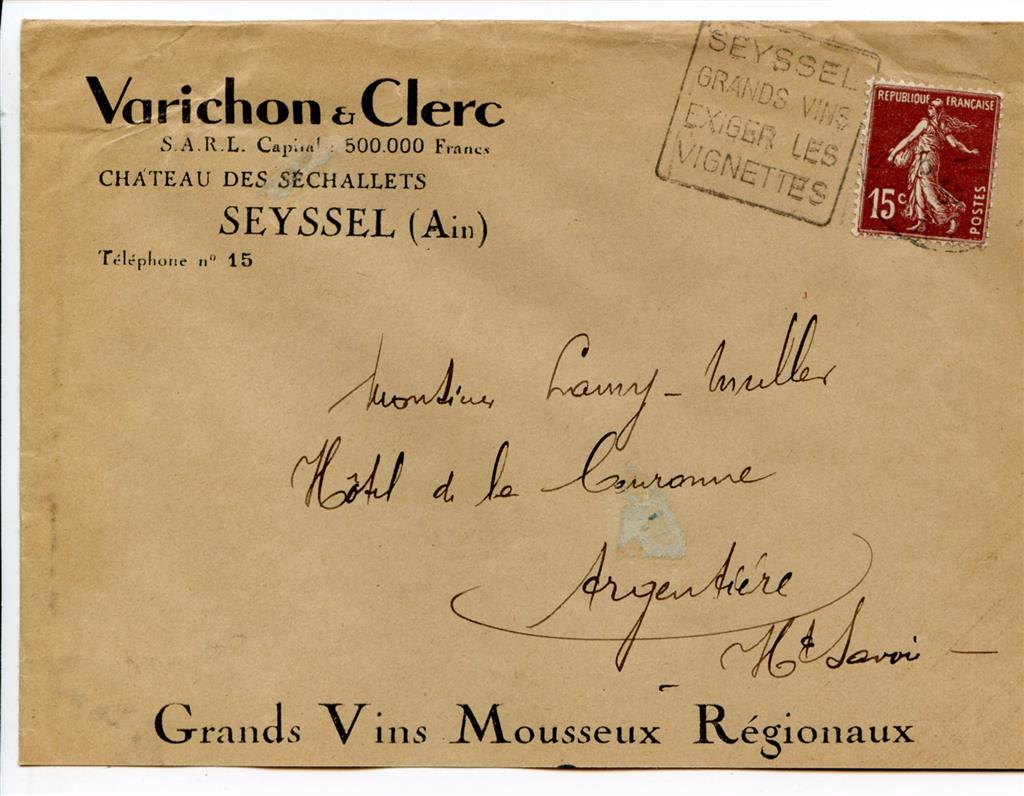 Varichon & Clerc
S.A.R.L. Capital : 500.000 Francs
CHÂTEAU DES SÉCHALLETS
SEYSSEL (Ain)
Téléphone nº 15
SEYSSEL
GRANDS VINS
EXIGER LES
VIGNETTES
REPUBLIQUE FRANÇAISE
15c
POSTES
Monsieur Lamy - Muller
Hôtel de la Couronne
Argentière
Hte Savoie
Grands Vins Mousseux Régionaux